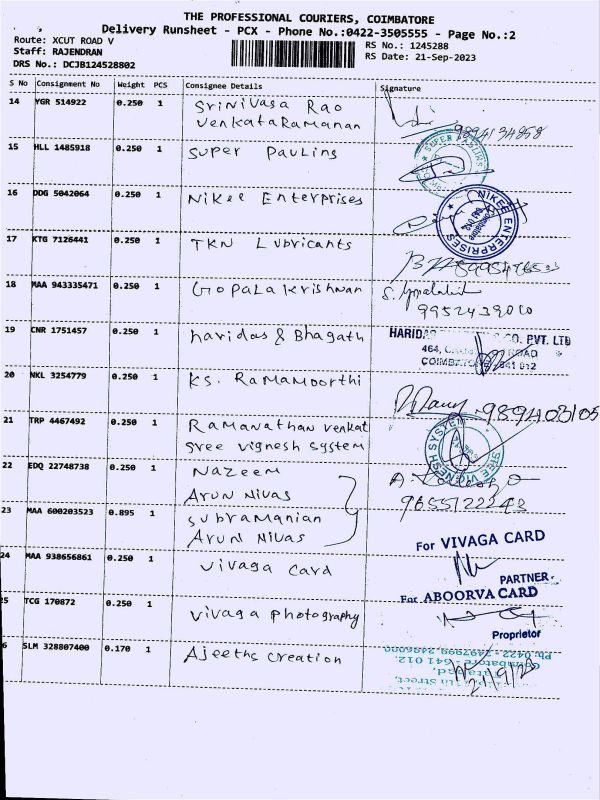 THE PROFESSIONAL COURIERS, COIMBATORE
Delivery Runsheet - PCX - Phone No.:0422-3505555 - Page No.:2
Route: XCUT ROAD V
RS No.: 1245288
Staff: RAJENDRAN
RS Date: 21-Sep-2023
DRS No.: DCJB124528802
S No Consignment No Weight PCS Consignee Details Signature
14 YGR 514922 0.250 1 Srinivasa Rao
Venkataramanan
9894134858
15 HLL 1485918 0.250 1 Super Paulins
16 DDG 5042064 0.250 1 Nikee Enterprises
NIKEE ENTERPRISES
17 KTG 7126441 0.250 1 TKN Lubricants
18 MAA 943335471 0.250 1 Gopalakrishnan
9952439010
19 CNR 1751457 0.250 1 haridas & Bhagath
HARIDAS & CO. PVT. LTD
464, ROAD
COIMBATORE 641 012
20 NKL 3254779 0.250 1 KS. Ramamoorthi
21 TRP 4467492 0.250 1 Ramanathan venkat
Sree vignesh system
SREE VIGNESH SYSTEM
22 EDQ 22748738 0.250 1 Nazeem
Arun Nivas
9655122243
23 MAA 600203523 0.895 1 Subramanian
Arun Nivas
For VIVAGA CARD
24 MAA 938656861 0.250 1 Vivaga Card
PARTNER
For ABOORVA CARD
25 TCG 170872 0.250 1 Vivaga Photography
Proprietor
6 SLM 328807400 0.170 1 Ajeeths creation
Coimbatore - 641 012.
21/9/23